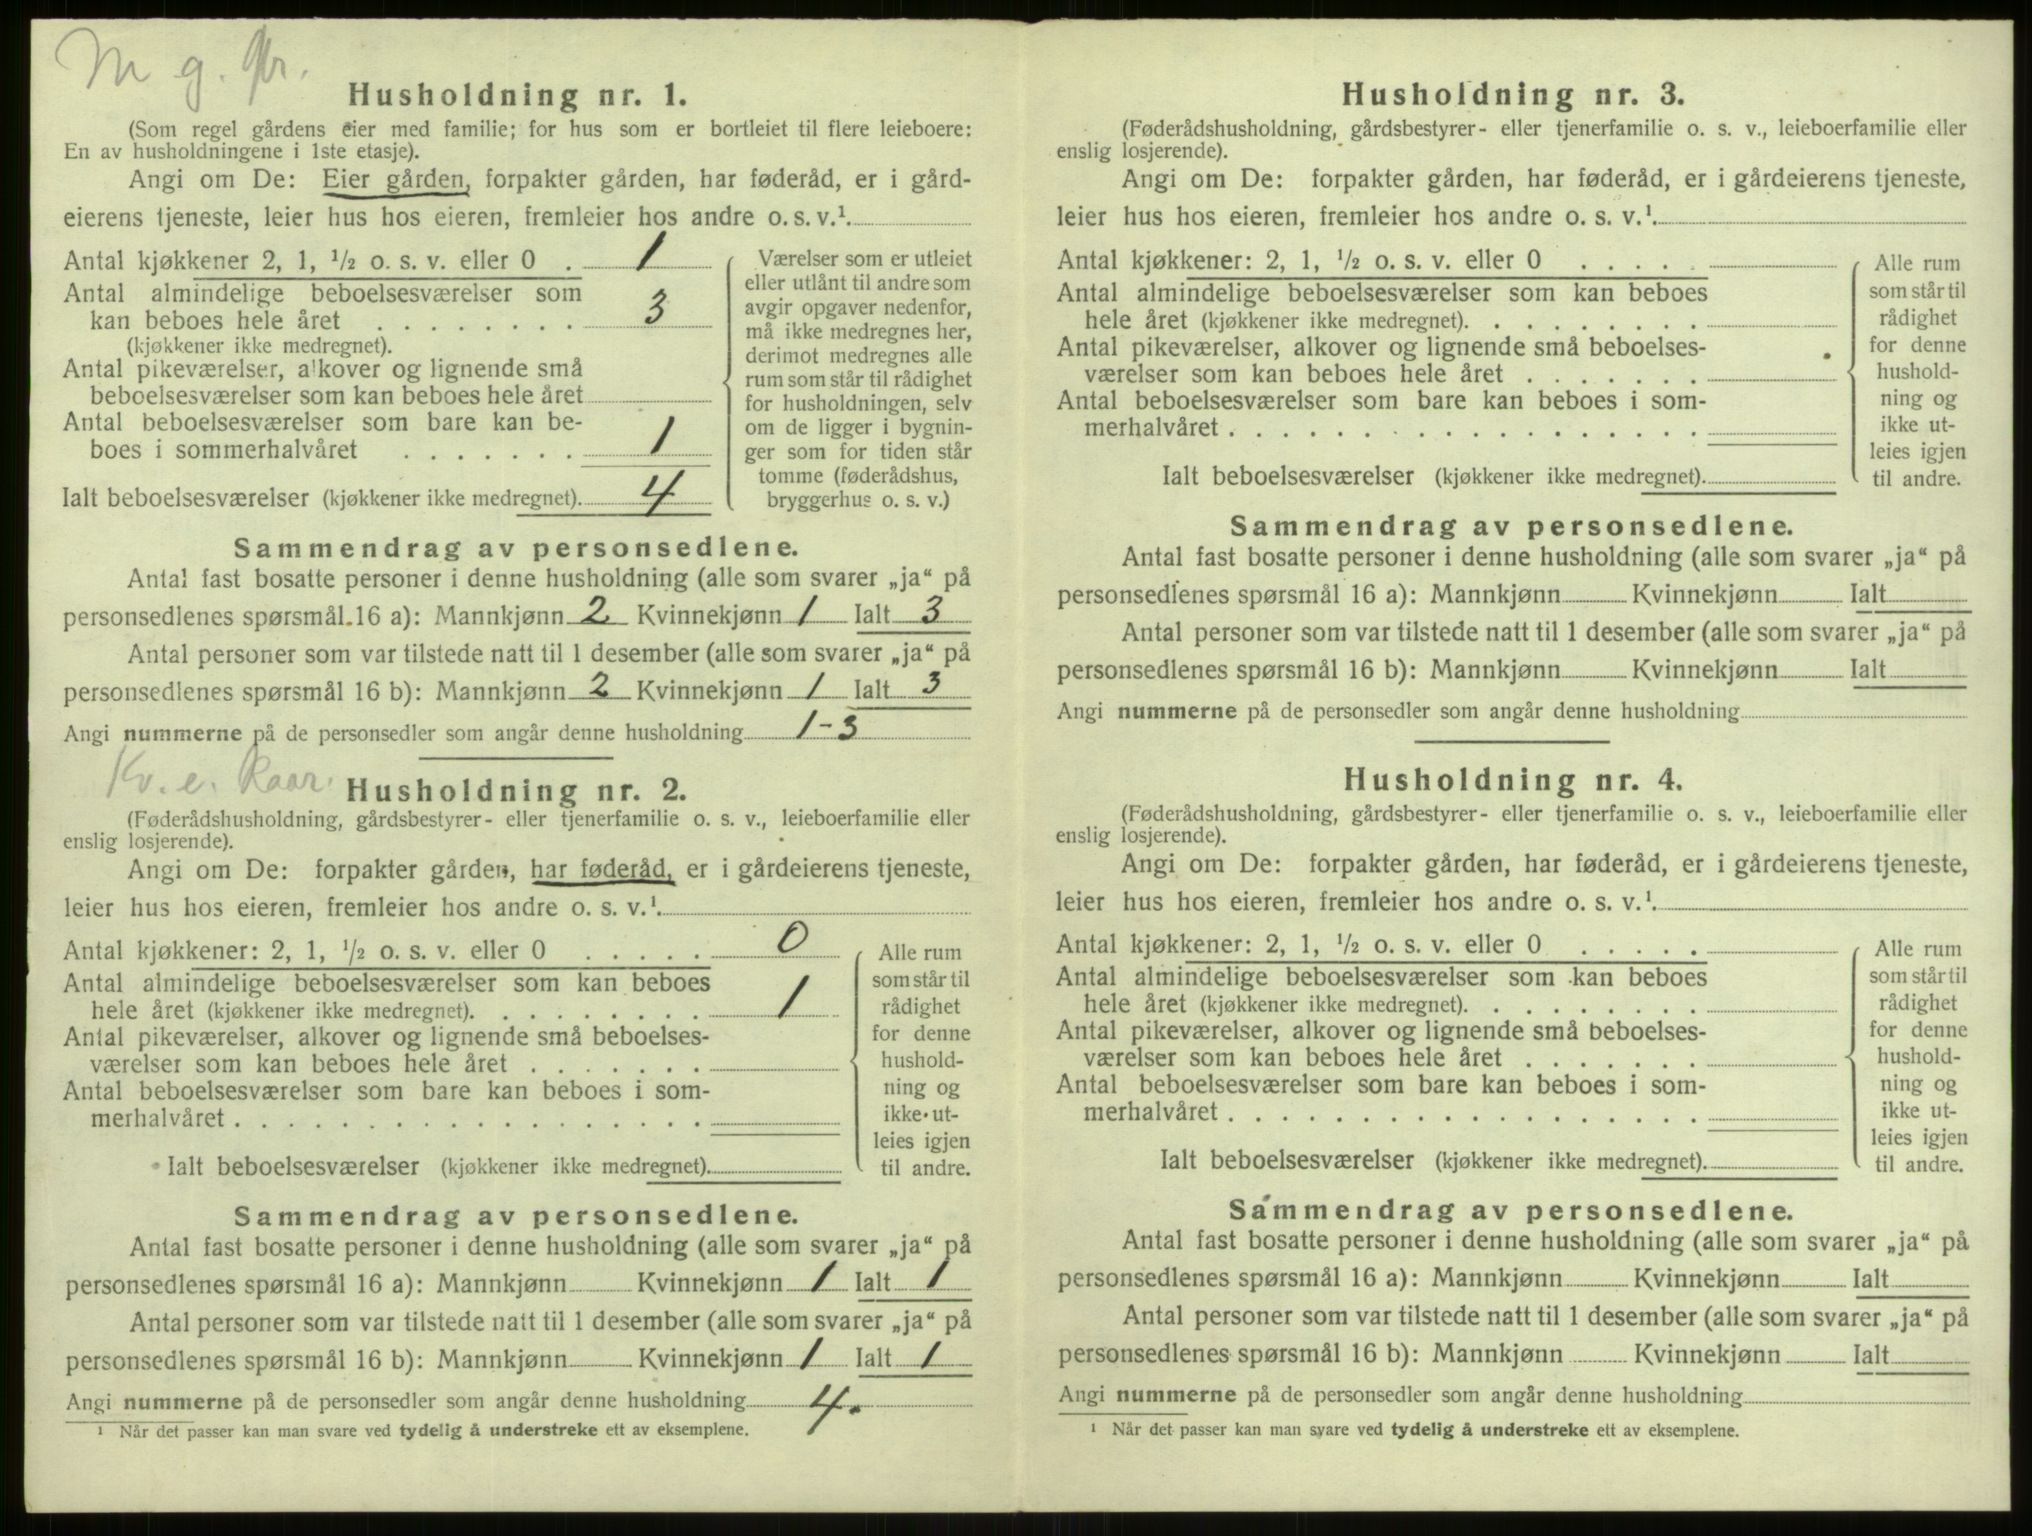 M g. gbr.
Husholdning nr. 1.
(Som regel gårdens eier med familie; for hus som er bortleiet til flere leieboere:
En av husholdningene i 1ste etasje).
Angi om De: Eier gården, forpakter gården, har føderåd, er i gård-
eierens tjeneste, leier hus hos eieren, fremleier hos andre o. s. v.¹
Antal kjøkkener 2, 1, ½ o. s. v. eller 0 . 1
Antal almindelige beboelsesværelser som
kan beboes hele året . . . . . . . . 3
(kjøkkener ikke medregnet).
Antal pikeværelser, alkover og lignende små
beboelsesværelser som kan beboes hele året
Antal beboelsesværelser som bare kan be-
boes i sommerhalvåret . . . . . . . 1
Ialt beboelsesværelser (kjøkkener ikke medregnet). 4
Værelser som er utleiet
eller utlånt til andre som
avgir opgaver nedenfor,
må ikke medregnes her,
derimot medregnes alle
rum som står til rådighet
for husholdningen, selv
om de ligger i bygnin-
ger som for tiden står
tomme (føderådshus,
bryggerhus o. s. v.)
Sammendrag av personsedlene.
Antal fast bosatte personer i denne husholdning (alle som svarer „ja“ på
personsedlenes spørsmål 16 a): Mannkjønn 2 Kvinnekjønn 1 Ialt 3
Antal personer som var tilstede natt til 1 desember (alle som svarer „ja“ på
personsedlenes spørsmål 16 b): Mannkjønn 2 Kvinnekjønn 1 Ialt 3
Angi nummerne på de personsedler som angår denne husholdning 1-3
Kv. e. Kaar.
Husholdning nr. 2.
(Føderådshusholdning, gårdsbestyrer- eller tjenerfamilie o. s. v., leieboerfamilie eller
enslig losjerende).
Angi om De: forpakter gården, har føderåd, er i gårdeierens tjeneste,
leier hus hos eieren, fremleier hos andre o. s. v.¹.
Antal kjøkkener: 2, 1, ½ o. s. v. eller 0 . . . . . 0
Antal almindelige beboelsesværelser som kan beboes
hele året (kjøkkener ikke medregnet). . . . . . . . . 1
Antal pikeværelser, alkover og lignende små beboelses-
værelser som kan beboes hele året . . . . . . .
Antal beboelsesværelser som bare kan beboes i som-
merhalvåret . . . . . . . . . . . . . . . . . .
Ialt beboelsesværelser (kjøkkener ikke medregnet).
Alle rum
som står til
rådighet
for denne
hushold-
ning og
ikke ut-
leies igjen
til andre.
Sammendrag av personsedlene.
Antal fast bosatte personer i denne husholdning (alle som svarer „ja“ på
personsedlenes spørsmål 16 a): Mannkjønn Kvinnekjønn 1 Ialt 1
Antal personer som var tilstede natt til 1 desember (alle som svarer „ja“ på
personsedlenes spørsmål 16 b): Mannkjønn Kvinnekjønn 1 Ialt 1
Angi nummerne på de personsedler som angår denne husholdning 4.
¹ Når det passer kan man svare ved tydelig å understreke ett av eksemplene.
Husholdning nr. 3.
(Føderådshusholdning, gårdsbestyrer- eller tjenerfamilie o. s. v., leieboerfamilie eller
enslig losjerende).
Angi om De: forpakter gården, har føderåd, er i gårdeierens tjeneste,
leier hus hos eieren, fremleier hos andre o. s. v.¹.
Antal kjøkkener: 2, 1, ½ o. s. v. eller 0 . . . . .
Antal almindelige beboelsesværelser som kan beboes
hele året (kjøkkener ikke medregnet). . . . . . . . .
Antal pikeværelser, alkover og lignende små beboelses-
værelser som kan beboes hele året . . . . . . .
Antal beboelsesværelser som bare kan beboes i som-
merhalvåret . . . . . . . . . . . . . . . . . .
Ialt beboelsesværelser (kjøkkener ikke medregnet).
Alle rum
som står til
rådighet
for denne
hushold-
ning og
ikke ut-
leies igjen
til andre.
Sammendrag av personsedlene.
Antal fast bosatte personer i denne husholdning (alle som svarer „ja“ på
personsedlenes spørsmål 16 a): Mannkjønn Kvinnekjønn Ialt
Antal personer som var tilstede natt til 1 desember (alle som svarer „ja“ på
personsedlenes spørsmål 16 b): Mannkjønn Kvinnekjønn Ialt
Angi nummerne på de personsedler som angår denne husholdning
Husholdning nr. 4.
(Føderådshusholdning, gårdsbestyrer- eller tjenerfamilie o. s. v., leieboerfamilie eller
enslig losjerende).
Angi om De: forpakter gården, har føderåd, er i gårdeierens tjeneste,
leier hus hos eieren, fremleier hos andre o. s. v.¹.
Antal kjøkkener: 2, 1, ½ o. s. v. eller 0 . . . . .
Antal almindelige beboelsesværelser som kan beboes
hele året (kjøkkener ikke medregnet). . . . . . . . .
Antal pikeværelser, alkover og lignende små beboelses-
værelser som kan beboes hele året . . . . . . .
Antal beboelsesværelser som bare kan beboes i som-
merhalvåret . . . . . . . . . . . . . . . . . .
Ialt beboelsesværelser (kjøkkener ikke medregnet).
Alle rum
som står til
rådighet
for denne
hushold-
ning og
ikke ut-
leies igjen
til andre.
Sammendrag av personsedlene.
Antal fast bosatte personer i denne husholdning (alle som svarer „ja“ på
personsedlenes spørsmål 16 a): Mannkjønn Kvinnekjønn Ialt
Antal personer som var tilstede natt til 1 desember (alle som svarer „ja“ på
personsedlenes spørsmål 16 b): Mannkjønn Kvinnekjønn Ialt
Angi nummerne på de personsedler som angår denne husholdning
¹ Når det passer kan man svare ved tydelig å understreke ett av eksemplene.